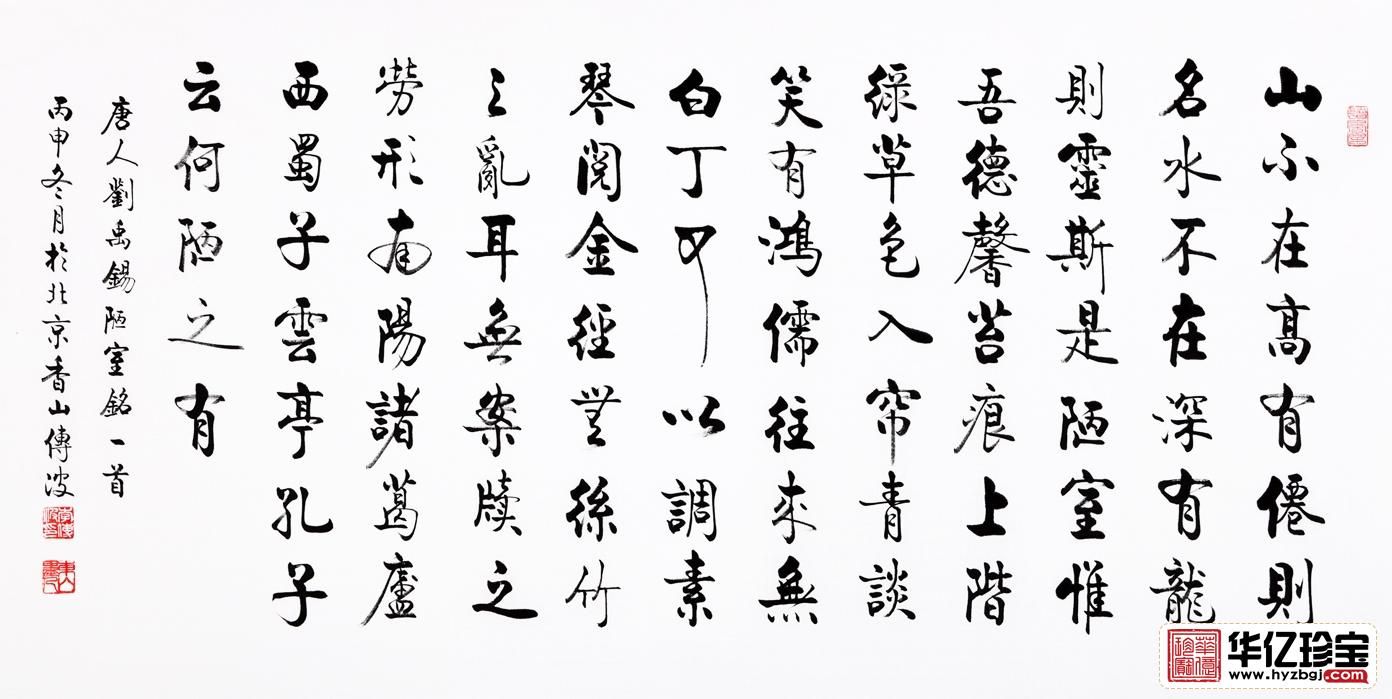 山不在髙有僊則
名水不在深有龍
則靈斯是陋室惟
吾德馨苔痕上階
緑草色入帘青談
笑有鴻儒往來無
白丁可以調素
琴閲金經無絲竹
之亂耳無案牘之
勞形南陽諸葛廬
西蜀子雲亭孔子
云何陋之有
唐人劉禹錫陋室銘一首
丙申冬月於北京香山傳波
华亿珍宝
www.hyzbgj.com